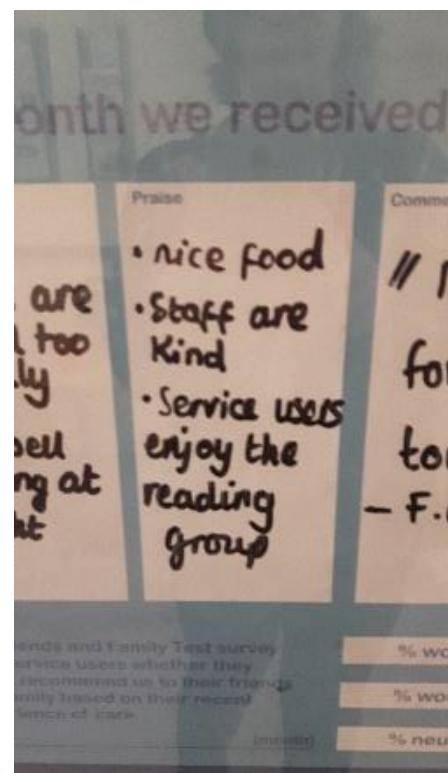 onth we received
are
too
ly
sell
ng at
ht
Praise
• nice food
• Staff are
Kind
• Service users
enjoy the
reading
group
Comme
"
for
to
– F.
ends and Family Test survey
ervice users whether they
recommended us to their friends
mily based on their recent
ience of care
(month)
% wo
% wo
% neu